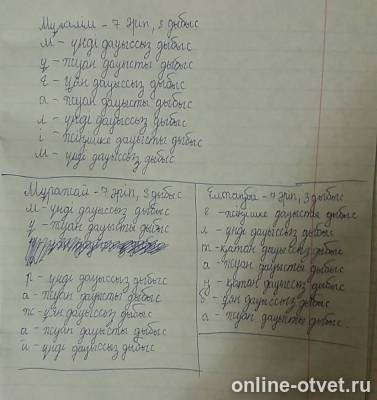 Мұғалім - 7 әріп, 3 дыбыс
м - үнді дауыссыз дыбыс
ұ - жуан дауысты дыбыс
ғ - ұян дауыссыз дыбыс
а - жуан дауысты дыбыс
л - үнді дауыссыз дыбыс
і - жіңішке дауысты дыбыс
м - үнді дауыссыз дыбыс
Мұражай - 7 әріп, 3 дыбыс
м - үнді дауыссыз дыбыс
ұ - жуан дауысты дыбыс
р - үнді дауыссыз дыбыс
а - жуан дауысты дыбыс
ж - ұян дауыссыз дыбыс
а - жуан дауысты дыбыс
й - үнді дауыссыз дыбыс
Елтаңба - 7 әріп, 3 дыбыс
е - жіңішке дауысты дыбыс
л - үнді дауыссыз дыбыс
т - қатаң дауыссыз дыбыс
а - жуан дауысты дыбыс
қатаң дауыссыз дыбыс
б - ұян дауыссыз дыбыс
а - жуан дауысты дыбыс.
online-otvet.ru